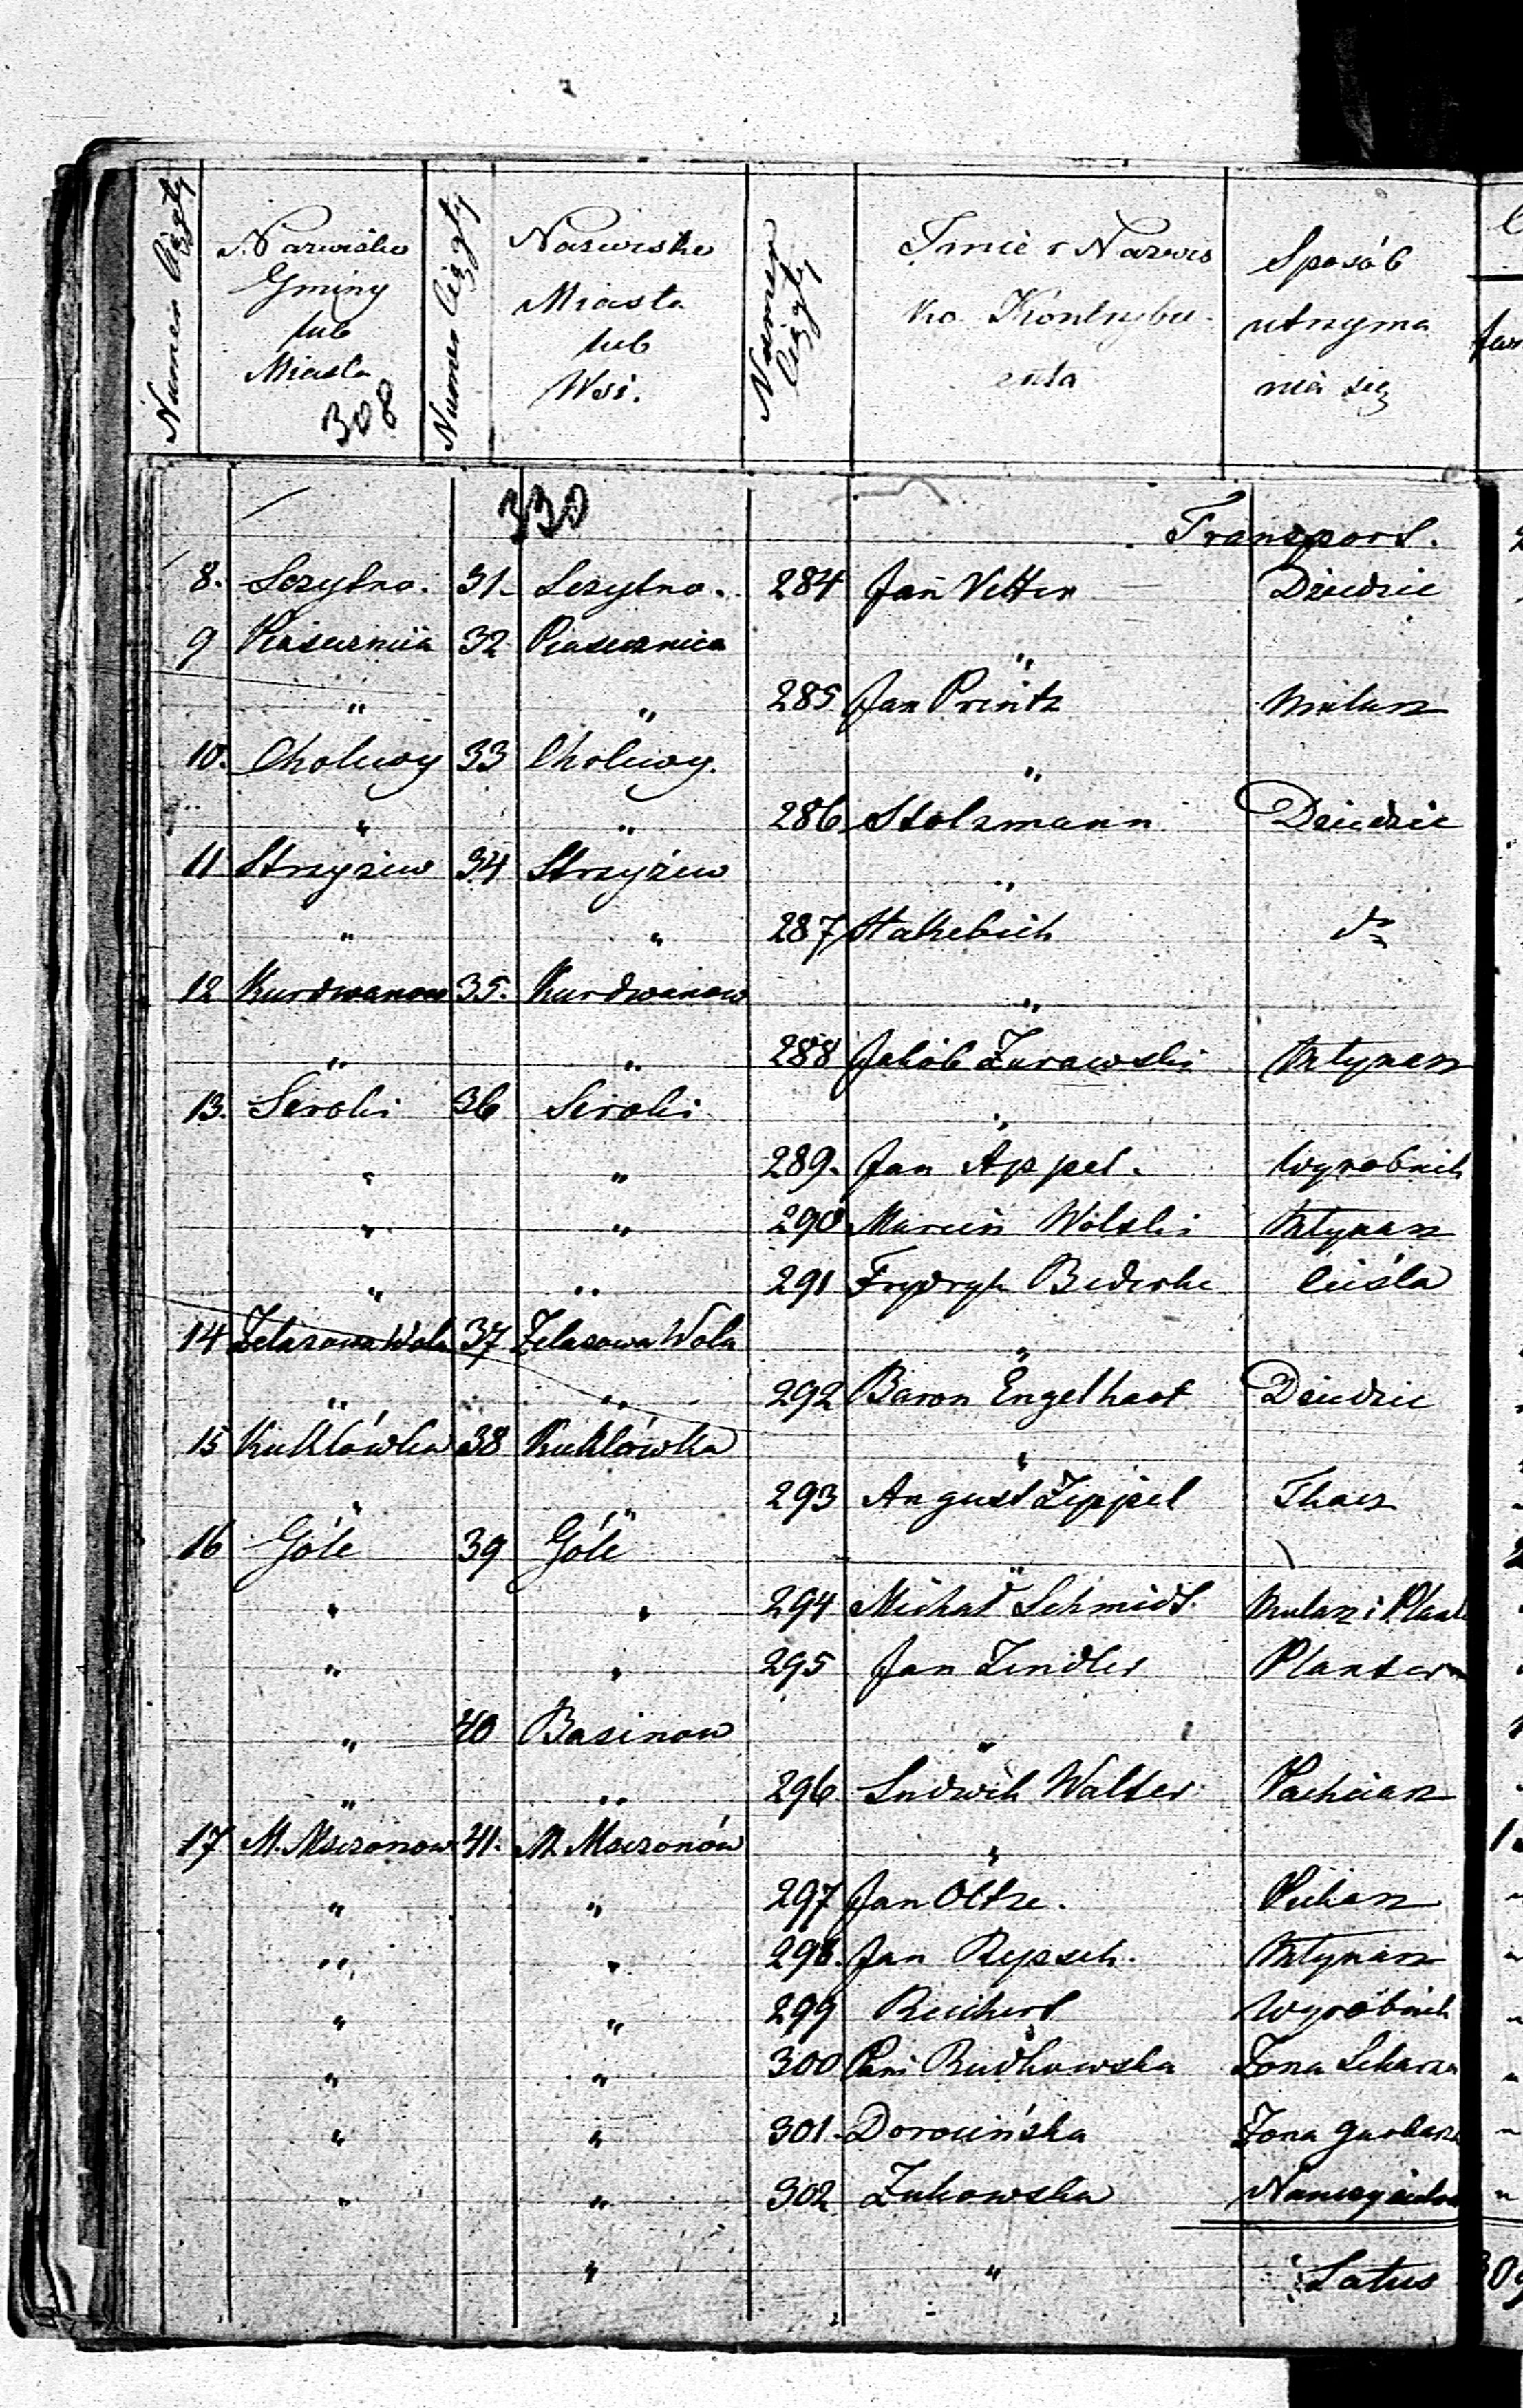 Numer Ciągły | Nazwisko Gminy lub Miasta | Numer Ciągły | Nazwisko Miasta lub Wsi. | Numer Ciągły | Imie i Nazwisko Kontrybuenta | Sposób utrzymania się
308
330
Transport.
8. Seszytno. 31. Seszytno. 284 Jan Vetter Dziedzic
9 Piasecznica 32 Piasecznica "
" " 285 Jan Printz Mularz
10. Cholewy 33 Cholewy. "
" " 286 Stolzmann Dziedzic
11 Stryżew 34 Stryżew "
" " 287 Stakebich do
12 Kurdwanow 35. Kurdwanow "
" " 288 Jakób Zurawski Młynarz
13. Seroki 36 Seroki "
" " 289. Jan Appel. Wyrobnik
" " 290 Marcin Wolski Młynarz
" " 291 Frydryk Bederke Cieśla
14 Zelazowa Wola 37 Zelazowa Wola "
" " 292 Baron Engelhart Dziedzic
15 Kuklówka 38 Kuklówka "
" " 293 August Zeppel Tkacz
16 Góle 39 Góle "
" " 294 Michał Schmidt. Mularz i
" " 295 Jan Zendler
" 40 Basinow "
" " 296 Ludwik Walter Pachciarz
17 M. Mszczonow 41. M. Mszczonów "
" " 297 Jan Oltze. Piekarz
" " 298. Jan Repsch. Młynarz
" " 299 Reichert Wyrobnik
" " 300 Pani Rudkowska Zona Lekarza
" " 301 Dorocińska Zona Garbarza
" " 302 Zukowska
" " Latus